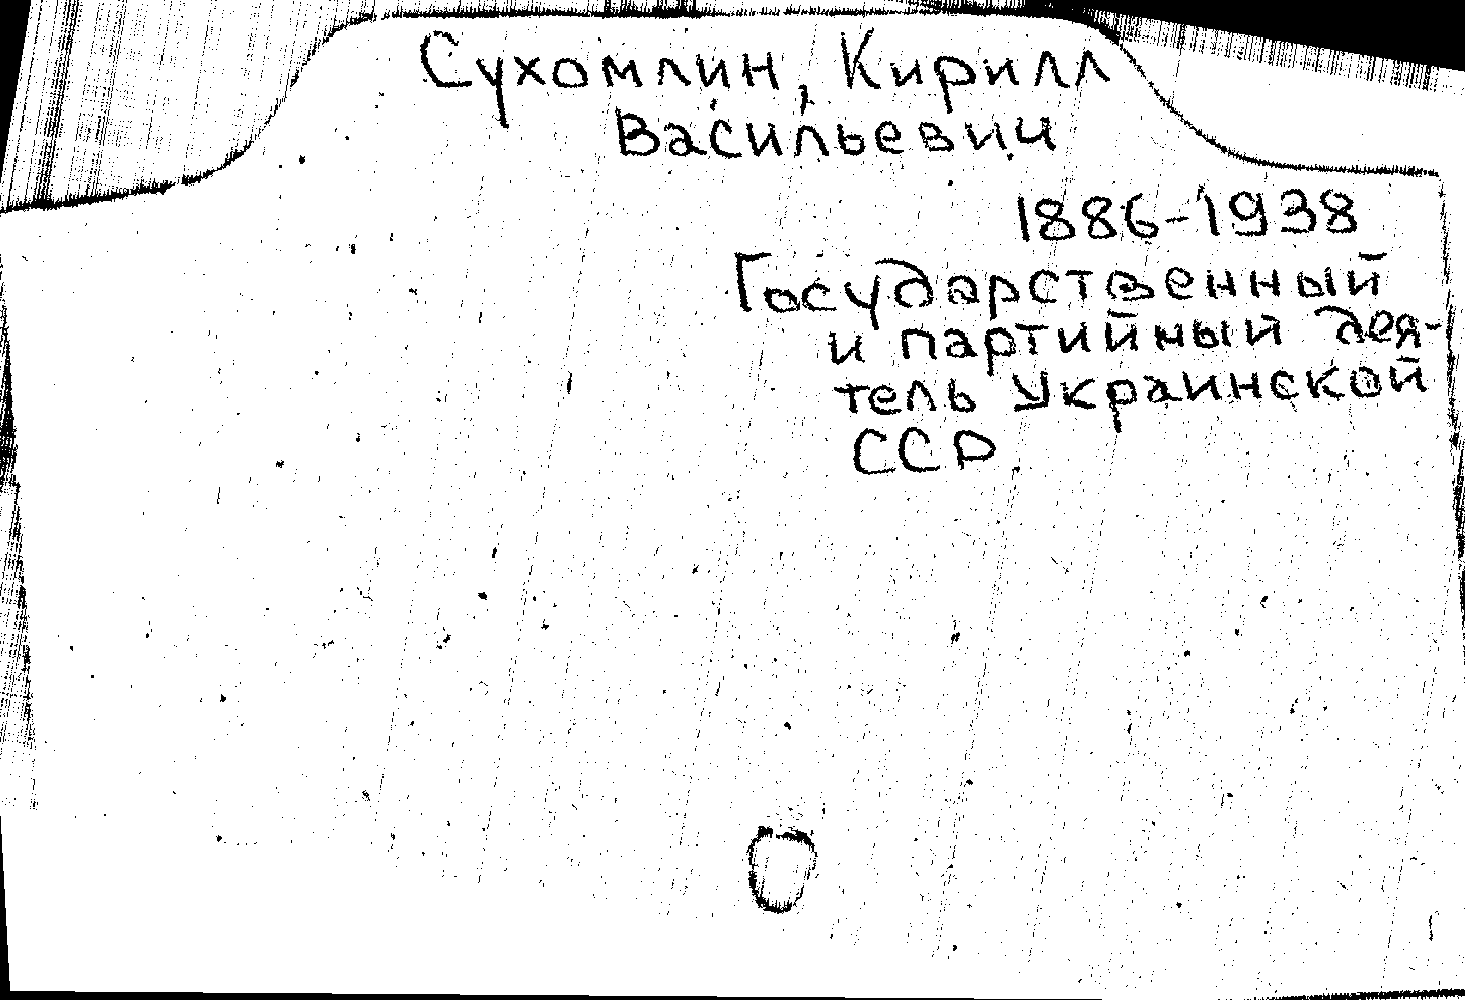 Сухомлин, Кирилл
Васильевич
1886-1938
Государственный
и партийный дея-
тель Украинской
ССР